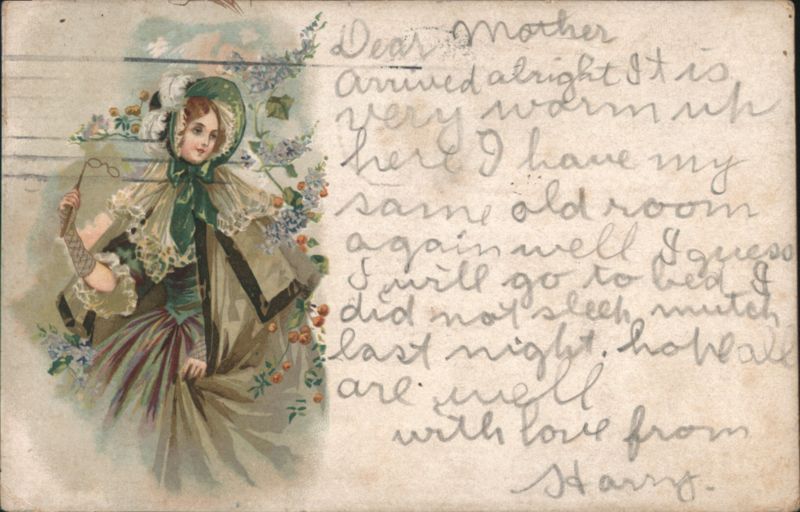 Dear Mother
Arrived alright It is
very warm uh
here I have my
same old room
again well I guess
I will go to bed I
did not sleep mutch
last night. hope all
are well
with love from
Harry.